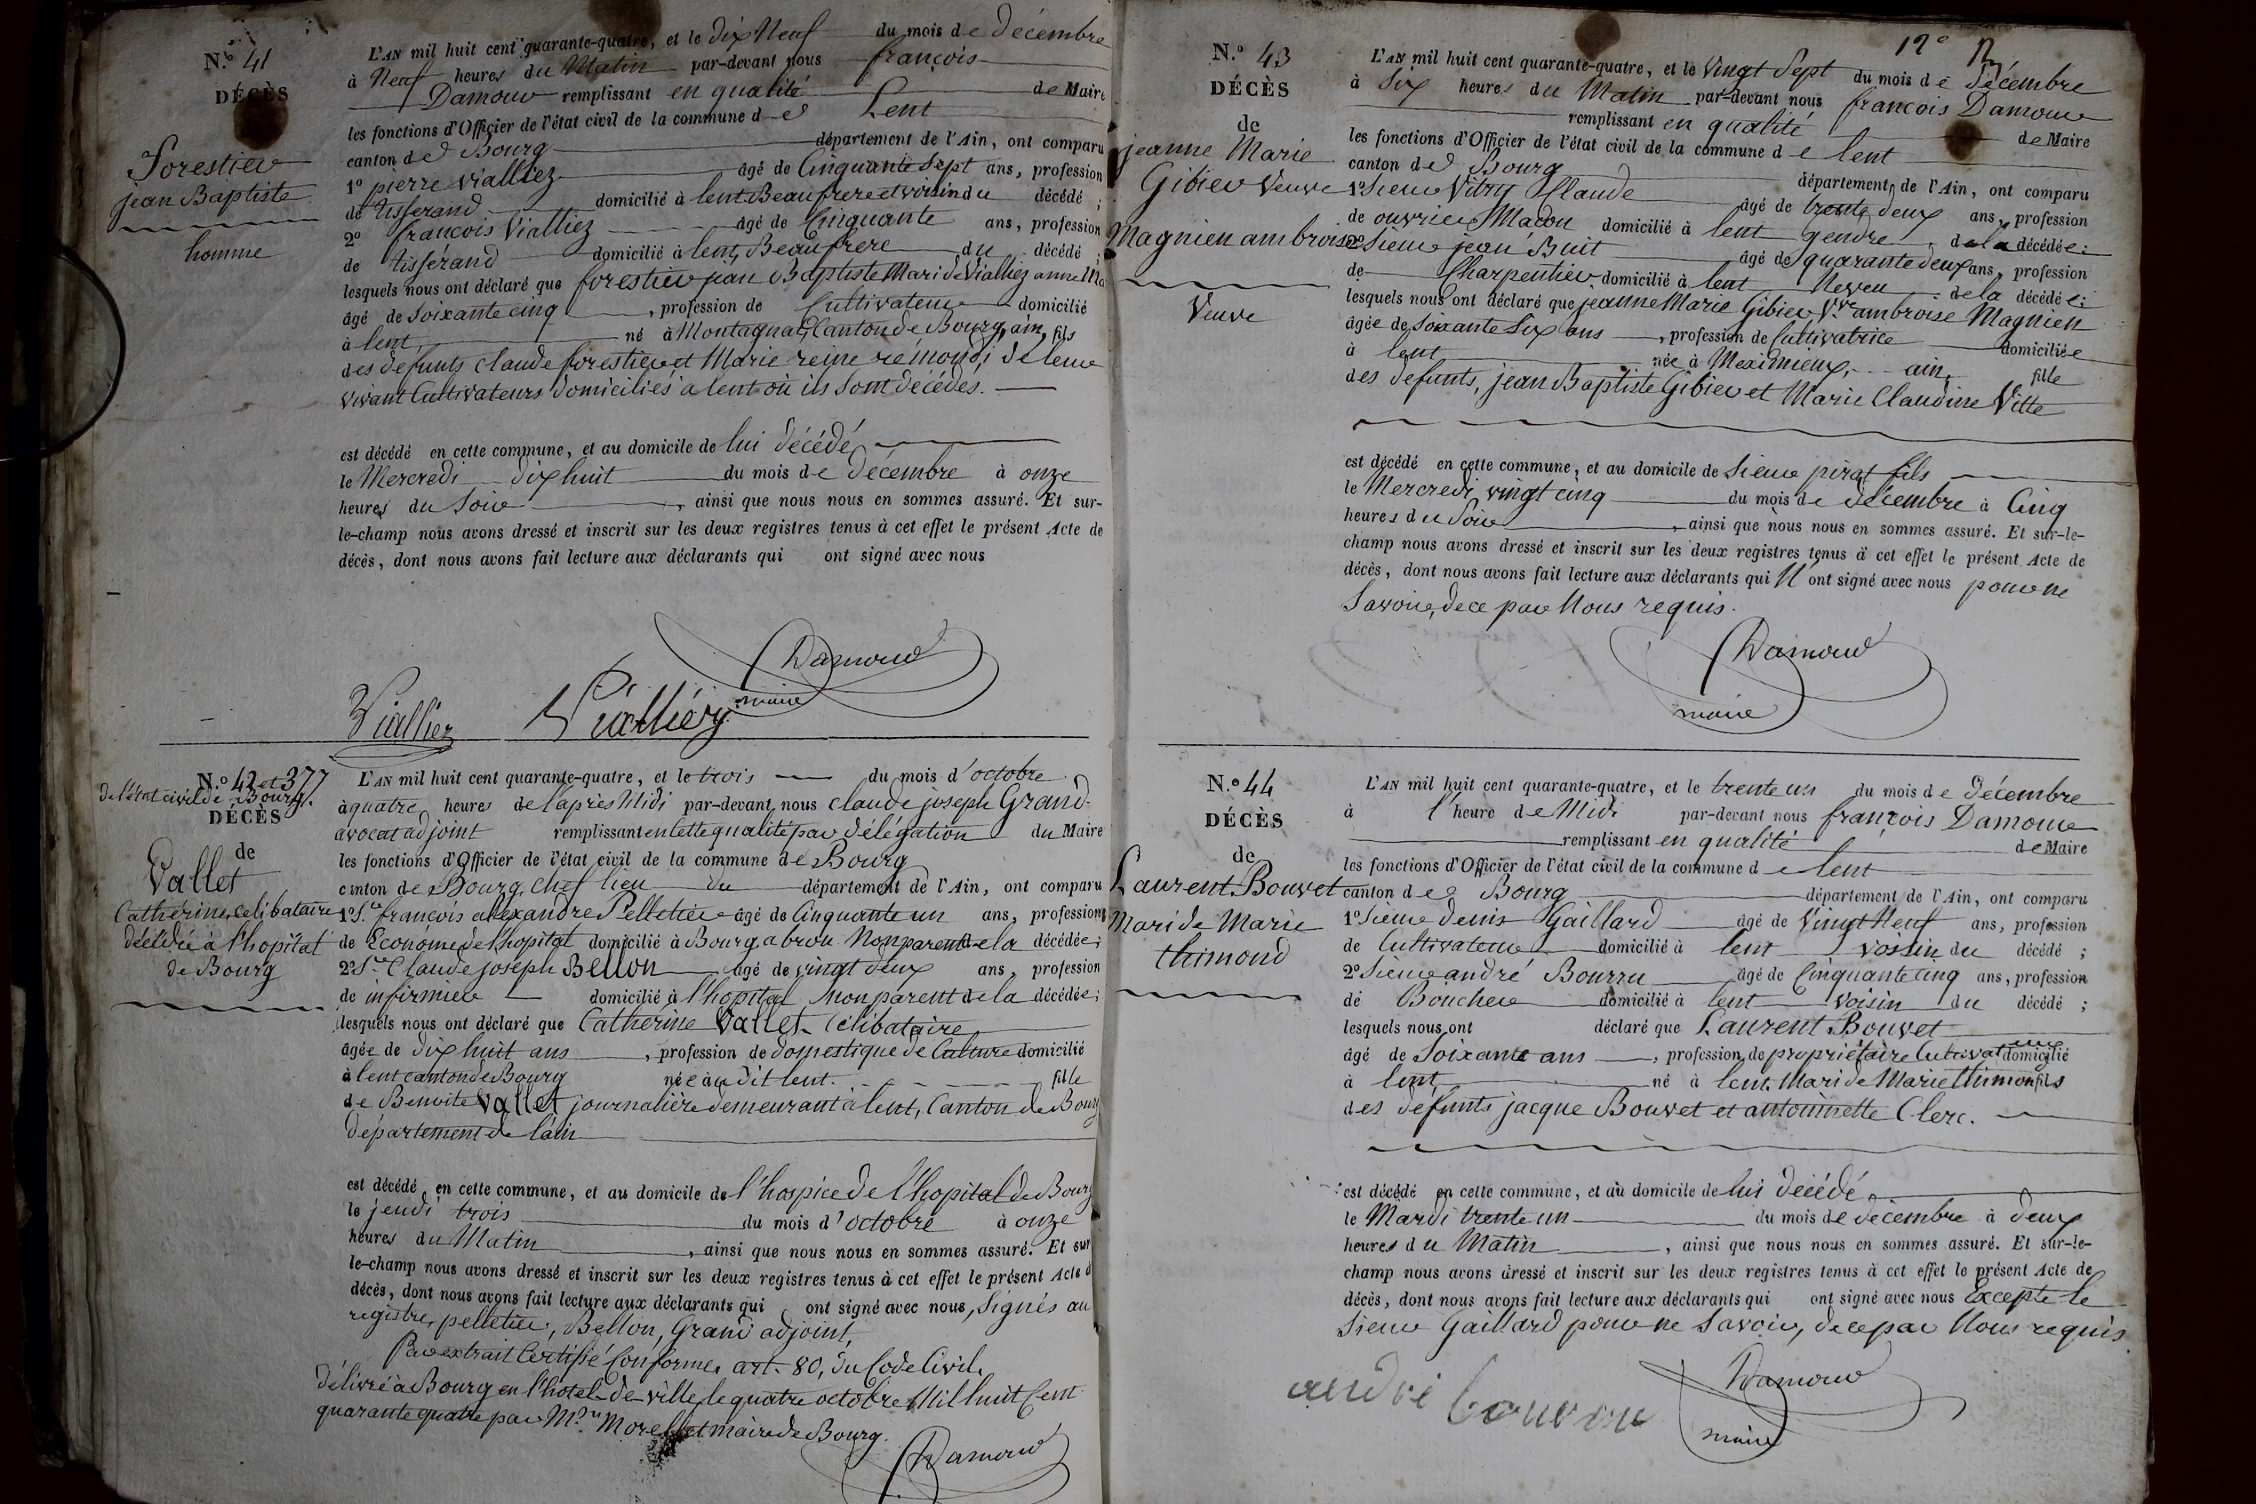 N.° 41
DÉCÈS
Forestier
jean Baptiste
homme
L'AN mil huit cent quarante-quatre, et le dix Neuf du mois de décembre
à Neuf heures du Matin par-devant nous françois
Damour remplissant en qualité de Maire
les fonctions d'Officier de l'état civil de la commune de Lent
canton de Bourg département de l'Ain, ont comparu
1° pierre vialliez âgé de Cinquante Sept ans, profession
de tisserand domicilié à lent Beaufrere et voisin du décédé ;
2° françois Vialliez âgé de Cinquante ans, profession
de tisserand domicilié à lent, Beaufrere du décédé ;
lesquels nous ont déclaré que forestier jean Baptiste Mari de Vialliez anne Ma
âgé de Soixante cinq , profession de Cultivateur domicilié
à lent né à Montagnat, Canton de Bourg, ain, fils
des défunts claude forestier et Marie reine rémond, de leur
vivant Cultivateurs domiciliés à lent où ils Sont décédés.
est décédé en cette commune, et au domicile de lui décédé
le Mercredi dix huit du mois de décembre à onze
heures du Soir , ainsi que nous nous en sommes assuré. Et sur-
le-champ nous avons dressé et inscrit sur les deux registres tenus à cet effet le présent Acte de
décès, dont nous avons fait lecture aux déclarants qui ont signé avec nous
Damour
maire
Viallier
Vialliézy
N.° 42 et 377
de l'état civil de Bourg.
DÉCÈS
de
Vallet
Catherine, celibataire
décédée à l'hopital
de Bourg
L'AN mil huit cent quarante-quatre, et le trois du mois d'octobre
à quatre heures de l'après Midi par-devant nous claude joseph Grand
avocat adjoint remplissant en cette qualité par délégation du Maire
les fonctions d'Officier de l'état civil de la commune de Bourg
canton de Bourg, chef lieu du département de l'Ain, ont comparu
1° S.r françois alexandre Pelletier âgé de Cinquante un ans, profession
de Económe de l'hopital domicilié à Bourg a brou Non parent de la décédée ;
2° S.r Claude joseph Bellon âgé de vingt deux ans, profession
de infirmier domicilié à l'hopital Non parent de la décédée ;
lesquels nous ont déclaré que Catherine Vallet, Célibataire
âgée de dix huit ans , profession de domestique de Culture domicilié
à lent canton de Bourg née àu dit lent. fille
de Benoite Vallet journalière demeurant à lent, Canton de Bourg
département de l'ain
est décédé en cette commune, et au domicile de l'hospice de l'hopital de Bourg
le jeudi trois du mois d'octobre à onze
heures du Matin , ainsi que nous nous en sommes assuré. Et sur
le-champ nous avons dressé et inscrit sur les deux registres tenus à cet effet le présent Acte d
décès, dont nous avons fait lecture aux déclarants qui ont signé avec nous, Signés au
registre, pelletier, Bellon, Grand adjoint,
Par extrait Certifié Conforme, art. 80, du Code Civil.
délivré à Bourg en l'hotel de ville le quatre octobre Mil huit Cent
quarante quatre par M.r Morellet maire de Bourg.
Damour
12e
N.° 43
DÉCÈS
de
jeanne Marie
Gibier Veuve
Magnien ambroise
Veuve
L'AN mil huit cent quarante-quatre, et le Vingt Sept du mois de décembre
à Six heures du Matin par-devant nous françois Damour
remplissant en qualité de Maire
les fonctions d'Officier de l'état civil de la commune de lent
canton de Bourg département de l'Ain, ont comparu
1° Sieur Vitry Claude âgé de trente deux ans, profession
de ouvrier Maçon domicilié à lent gendre de la décédée ;
2° Sieur jean Buit âgé de quarante deux ans, profession
de Charpentier domicilié à lent Neveu de la décédée ;
lesquels nous ont déclaré que jeanne Marie Gibier V.ve ambroise Magnien
âgée de Soixante Six ans , profession de Cultivatrice domiciliée
à lent née à Meximieux, ain, fille
des défunts, jean Baptiste Gibier et Marie Claudine Vitte
est décédé en cette commune, et au domicile de Sieur pirat fils
le Mercredi vingt cinq du mois de décembre à Cinq
heures du Soir , ainsi que nous nous en sommes assuré. Et sur-le-
champ nous avons dressé et inscrit sur les deux registres tenus à cet effet le présent Acte de
décès, dont nous avons fait lecture aux déclarants qui N'ont signé avec nous pour ne
Savoir, de ce par Nous requis.
Damour
maire
N.° 44
DÉCÈS
de
Laurent Bouvet
Mari de Marie
thimond
L'AN mil huit cent quarante-quatre, et le trente un du mois de décembre
à l'heure de Midi par-devant nous françois Damour
remplissant en qualité de Maire
les fonctions d'Officier de l'état civil de la commune de lent
canton de Bourg département de l'Ain, ont comparu
1° Sieur denis Gaillard âgé de Vingt Neuf ans, profession
de Cultivateur domicilié à lent voisin du décédé ;
2° Sieur andré Bourru âgé de Cinquante cinq ans, profession
de Boucher domicilié à lent Voisin du décédé ;
lesquels nous ont déclaré que Laurent Bouvet
âgé de Soixante ans , profession de propriétaire Cultivateur domicilié
à lent né à lent, Mari de Marie thimon fils
des défunts jacque Bouvet et antoinette Clerc.
est décédé en cette commune, et au domicile de lui décédé
le Mardi trente un du mois de décembre à deux
heures du Matin , ainsi que nous nous en sommes assuré. Et sur-le-
champ nous avons dressé et inscrit sur les deux registres tenus à cet effet le présent Acte de
décès, dont nous avons fait lecture aux déclarants qui ont signé avec nous Excepté le
Sieur Gaillard pour ne Savoir, de ce par Nous requis.
Damour
maire
andré bourou